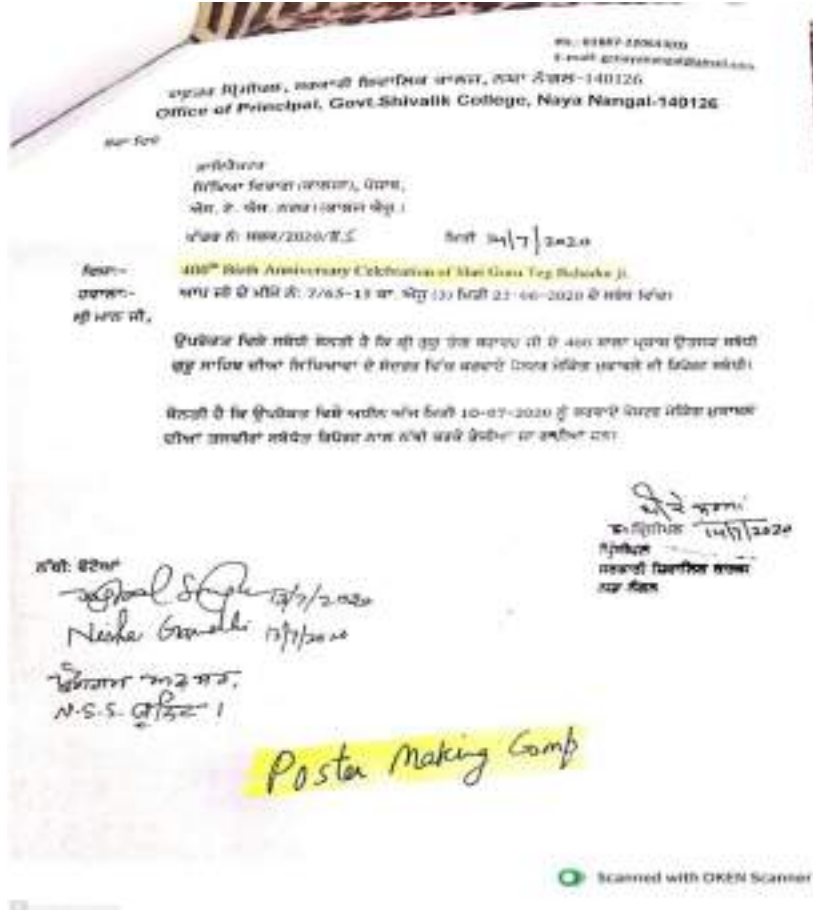 ਦਫ਼ਤਰ ਪ੍ਰਿੰਸੀਪਲ, ਸਰਕਾਰੀ ਸ਼ਿਵਾਲਿਕ ਕਾਲਜ, ਨਯਾ ਨੰਗਲ-140126
Office of Principal, Govt.Shivalik College, Naya Nangal-140126
ਸੇਵਾ ਵਿਖੇ
ਡਾਇਰੈਕਟਰ
ਸਿੱਖਿਆ ਵਿਭਾਗ (ਕਾਲਜਾਂ), ਪੰਜਾਬ,
ਮਿਤੀ 14/7/2020
ਵਿਸ਼ਾ:- 400th Birth Anniversary Celebration of Shri Guru Teg Bahadur ji.
ਹਵਾਲਾ:- ਆਪ ਜੀ ਦੇ ਮੀਮੋ ਨੰ: ਮਿਤੀ 23-06-2020 ਦੇ ਸਬੰਧ ਵਿੱਚ।
ਸ਼੍ਰੀ ਮਾਨ ਜੀ,
ਉਪਰੋਕਤ ਵਿਸ਼ੇ ਸਬੰਧੀ ਬੇਨਤੀ ਹੈ ਕਿ ਸ਼੍ਰੀ ਗੁਰੂ ਤੇਗ ਬਹਾਦਰ ਜੀ ਦੇ 400 ਸਾਲਾ ਪ੍ਰਕਾਸ਼ ਉਤਸਵ ਸਬੰਧੀ
ਗੁਰੂ ਸਾਹਿਬ ਦੀਆਂ ਸਿੱਖਿਆਵਾਂ ਦੇ ਵਿੱਚ ਕਰਵਾਏ ਪੋਸਟਰ ਮੇਕਿੰਗ ਮੁਕਾਬਲੇ ਦੀ ਰਿਪੋਰਟ ਸਬੰਧੀ।
ਬੇਨਤੀ ਹੈ ਕਿ ਉਪਰੋਕਤ ਵਿਸ਼ੇ ਅਧੀਨ ਅੱਜ ਮਿਤੀ 10-07-2020 ਨੂੰ ਕਰਵਾਏ ਪੋਸਟਰ ਮੇਕਿੰਗ ਮੁਕਾਬਲੇ
ਦੀਆਂ ਤਸਵੀਰਾਂ ਰਿਪੋਰਟ ਨਾਲ ਨੱਥੀ ਕਰਕੇ ਭੇਜੀਆਂ ਜਾ ਰਹੀਆਂ ਹਨ।
14/7/2020
ਪ੍ਰਿੰਸੀਪਲ
ਸਰਕਾਰੀ ਸ਼ਿਵਾਲਿਕ ਕਾਲਜ
ਨਯਾ ਨੰਗਲ
ਨੱਥੀ: ਫੋਟੋਆਂ
Singh 13/7/2020
Nisha Gandhi 13/7/2020
ਪ੍ਰੋਗਰਾਮ ਅਫਸਰ,
N.S.S. ਯੂਨਿਟ।
Poster Making Comp
Scanned with OKEN Scanner